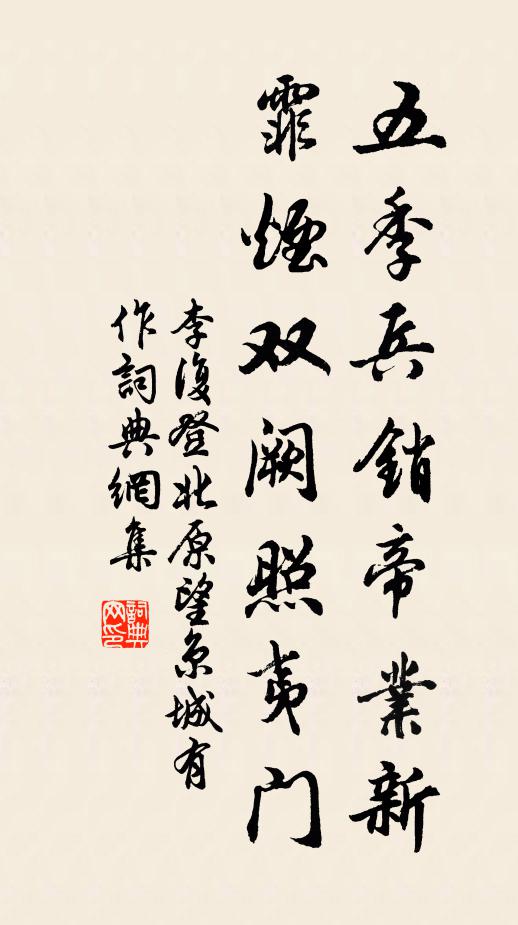 五季兵銷帝業新
霏煙双阙照夷门
李復登北原望京城有
作詞典網集
詞典网印